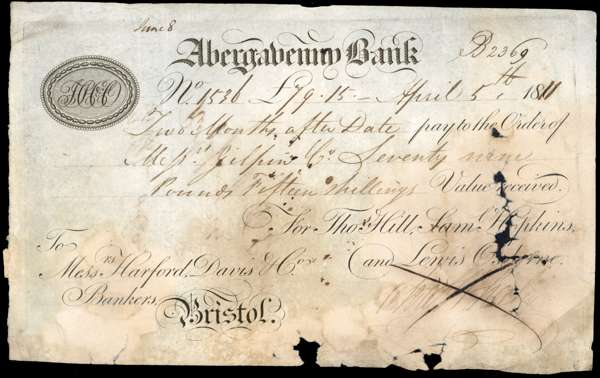 June 8
Abergavenny Bank B2369
No. 1536 £79.15 – April 5th 1811
Two Months after Date pay to the Order of
Messrs. Gilpin & Co. Seventy nine
Pounds Fifteen Shillings Value received.
For Thos. Hill, Sam. Hopkins,
To
Messrs. Harford, Davis & Co. and Lewis
Bankers,
Bristol.